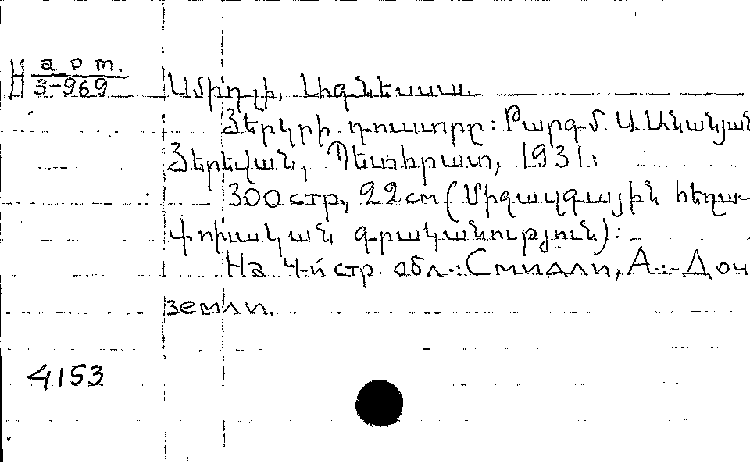 арт.
3-969
Սմիդլի, Ագնեսա.
Յերկրի դուստրը: Թարգմ. Ս. Ականյան
Յերեվան, Պետհրատ, 1931:
300 стр, 22 см (Միջազգային հեղա-
փոխական գրականություն):
На 4-й стр. обл.: Смидли, А.- Доч
земли.
4153